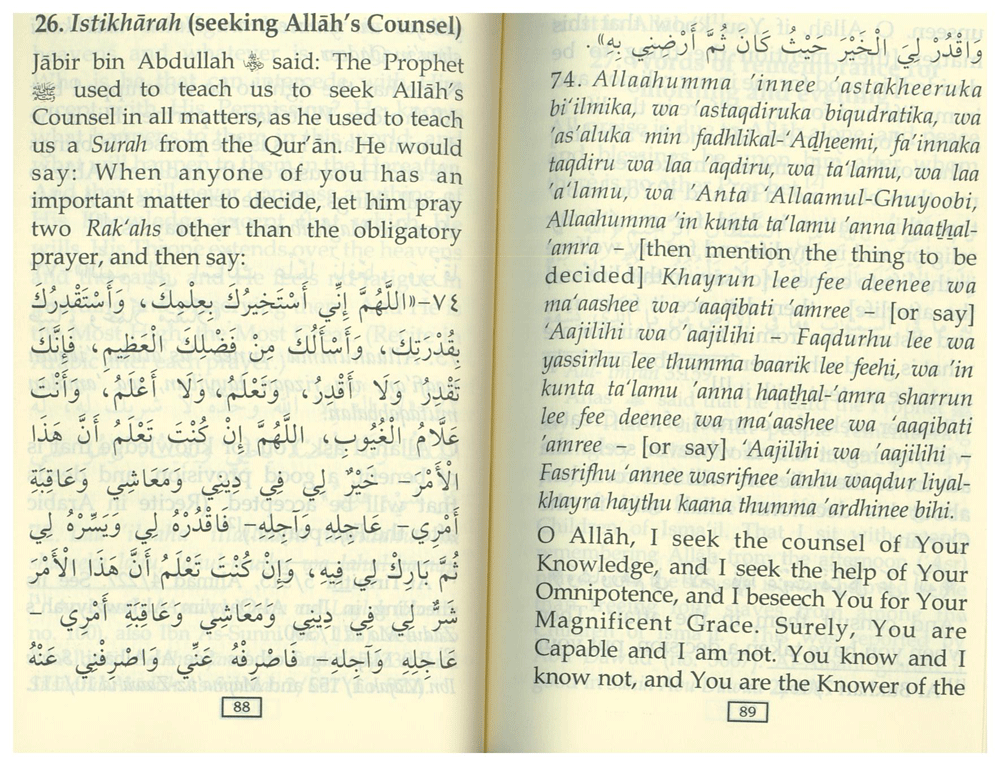 26. Istikhārah (seeking Allāh's Counsel)
Jābir bin Abdullah ﷺ said: The Prophet
ﷺ used to teach us to seek Allāh's
Counsel in all matters, as he used to teach
us a Surah from the Qur'ān. He would
say: When anyone of you has an
important matter to decide, let him pray
two Rak'ahs other than the obligatory
prayer, and then say:
٧٤-«اللَّهُمَّ إِنِّي أَسْتَخِيرُكَ بِعِلْمِكَ، وَأَسْتَقْدِرُكَ
بِقُدْرَتِكَ، وَأَسْأَلُكَ مِنْ فَضْلِكَ الْعَظِيمِ، فَإِنَّكَ
تَقْدِرُ وَلَا أَقْدِرُ، وَتَعْلَمُ، وَلَا أَعْلَمُ، وَأَنْتَ
عَلَّامُ الْغُيُوبِ، اللَّهُمَّ إِنْ كُنْتَ تَعْلَمُ أَنَّ هَذَا
الْأَمْرَ- خَيْرٌ لِي فِي دِينِي وَمَعَاشِي وَعَاقِبَةِ
أَمْرِي- عَاجِلِهِ وَآجِلِهِ- فَاقْدُرْهُ لِي وَيَسِّرْهُ لِي
ثُمَّ بَارِكْ لِي فِيهِ، وَإِنْ كُنْتَ تَعْلَمُ أَنَّ هَذَا الْأَمْرَ
شَرٌّ لِي فِي دِينِي وَمَعَاشِي وَعَاقِبَةِ أَمْرِي -
عَاجِلِهِ وَآجِلِهِ- فَاصْرِفْهُ عَنِّي وَاصْرِفْنِي عَنْهُ
88
وَاقْدُرْ لِيَ الْخَيْرَ حَيْثُ كَانَ ثُمَّ أَرْضِنِي بِهِ».
74. Allaahumma 'innee 'astakheeruka
bi'ilmika, wa 'astaqdiruka biqudratika, wa
'as'aluka min fadhlikal-'Adheemi, fa'innaka
taqdiru wa laa 'aqdiru, wa ta'lamu, wa laa
'a'lamu, wa 'Anta 'Allaamul-Ghuyoobi,
Allaahumma 'in kunta ta'lamu 'anna haathal-
'amra – [then mention the thing to be
decided] Khayrun lee fee deenee wa
ma'aashee wa 'aaqibati 'amree – [or say]
'Aajilihi wa 'aajilihi – Faqdurhu lee wa
yassirhu lee thumma baarik lee feehi, wa 'in
kunta ta'lamu 'anna haathal-'amra sharrun
lee fee deenee wa ma'aashee wa 'aaqibati
'amree – [or say] 'Aajilihi wa 'aajilihi –
Fasrifhu 'annee wasrifnee 'anhu waqdur liyal-
khayra haythu kaana thumma 'ardhinee bihi.
O Allāh, I seek the counsel of Your
Knowledge, and I seek the help of Your
Omnipotence, and I beseech You for Your
Magnificent Grace. Surely, You are
Capable and I am not. You know and I
know not, and You are the Knower of the
89